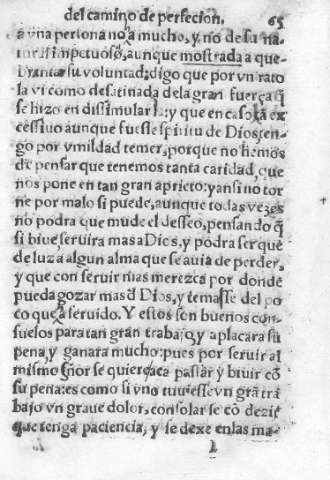 del camino de perfecion. 65
a vna persona no a mucho, y no de su na
tural impetuoso, aunque mostrada a que
brantar su voluntad; digo que por vn rato
la vi como desatinada dela gran fuerça q̃
se hizo en dissimular la: y que en caso tã ex
cessiuo aunque fuesse spiritu de Dios ten-
go por vmildad temer, porque no hemos
de pensar que tenemos tanta caridad, que
nos pone en tan gran aprieto: y ansi no tor
ne por malo si puede, aunque todas vezes
no podra que mude el desseo, pensando q̃
si biue seruira mas a Dios, y podra ser que
de luz a algun alma que se auia de perder,
y que con seruir mas merezca por donde
pueda gozar mas d̃ Dios, y temasse del po
co que a seruido. Y estos son buenos con-
suelos para tan gran trabajo, y aplacara su
pena, y ganara mucho: pues por seruir al
mismo señor se quier aca passar y biuir cõ
su pena: es como si vno tuuiesse vn grã tra
bajo vn graue dolor, consolar se cõ dezir
que tenga paciencia, y se dexe en las ma-